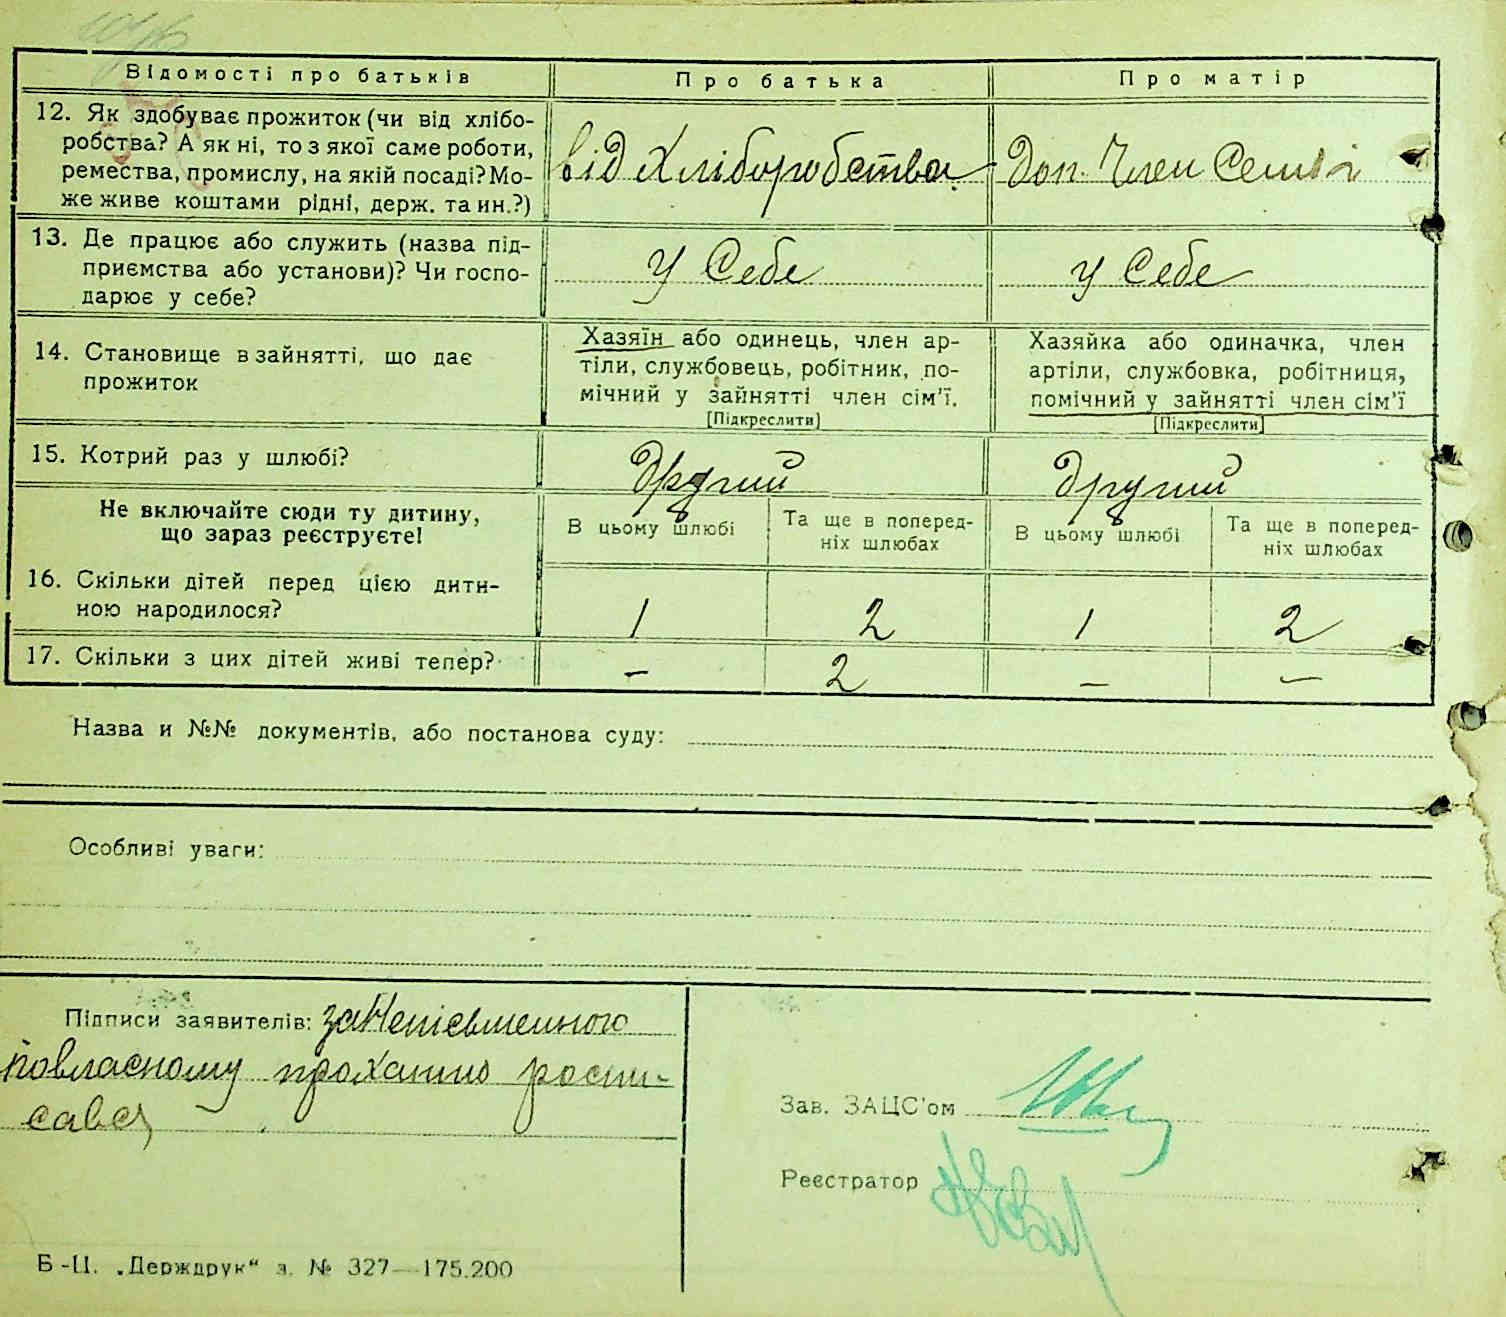 Відомості про батьків
Про батька
Про матір
12. Як здобуває прожиток (чи від хлібо-
робства? А як ні, то з якої саме роботи,
ремества, промислу, на якій посаді? Мо-
же живе коштами рідні, держ. та ин.?)
від Хліборобства
Доп. Член Семьі
13. Де працює або служить (назва під-
приємства або установи)? Чи госпо-
дарює у себе?
у Себе
у Себе
14. Становище в зайнятті, що дає
прожиток
Хазяїн або одинець, член ар-
тіли, службовець, робітник, по-
мічний у зайнятті член сім'ї.
[Підкреслити]
Хазяйка або одиначка, член
артіли, службовка, робітниця,
помічний у зайнятті член сім'ї
[Підкреслити]
15. Котрий раз у шлюбі?
Другий
Другий
Не включайте сюди ту дитину,
що зараз реєструєте!
В цьому шлюбі
Та ще в поперед-
ніх шлюбах
В цьому шлюбі
Та ще в поперед-
ніх шлюбах
16. Скільки дітей перед цією дити-
ною народилося?
1
2
1
2
17. Скільки з цих дітей живі тепер?
–
2
–
–
Назва и №№ документів, або постанова суду:
Особливі уваги:
Підписи заявителів: за Неписьменного
по власному проханню роспи-
савсь
Зав. ЗАЦС'ом
Реєстратор
Б-Ц. „Держдрук“ з. № 327—175.200